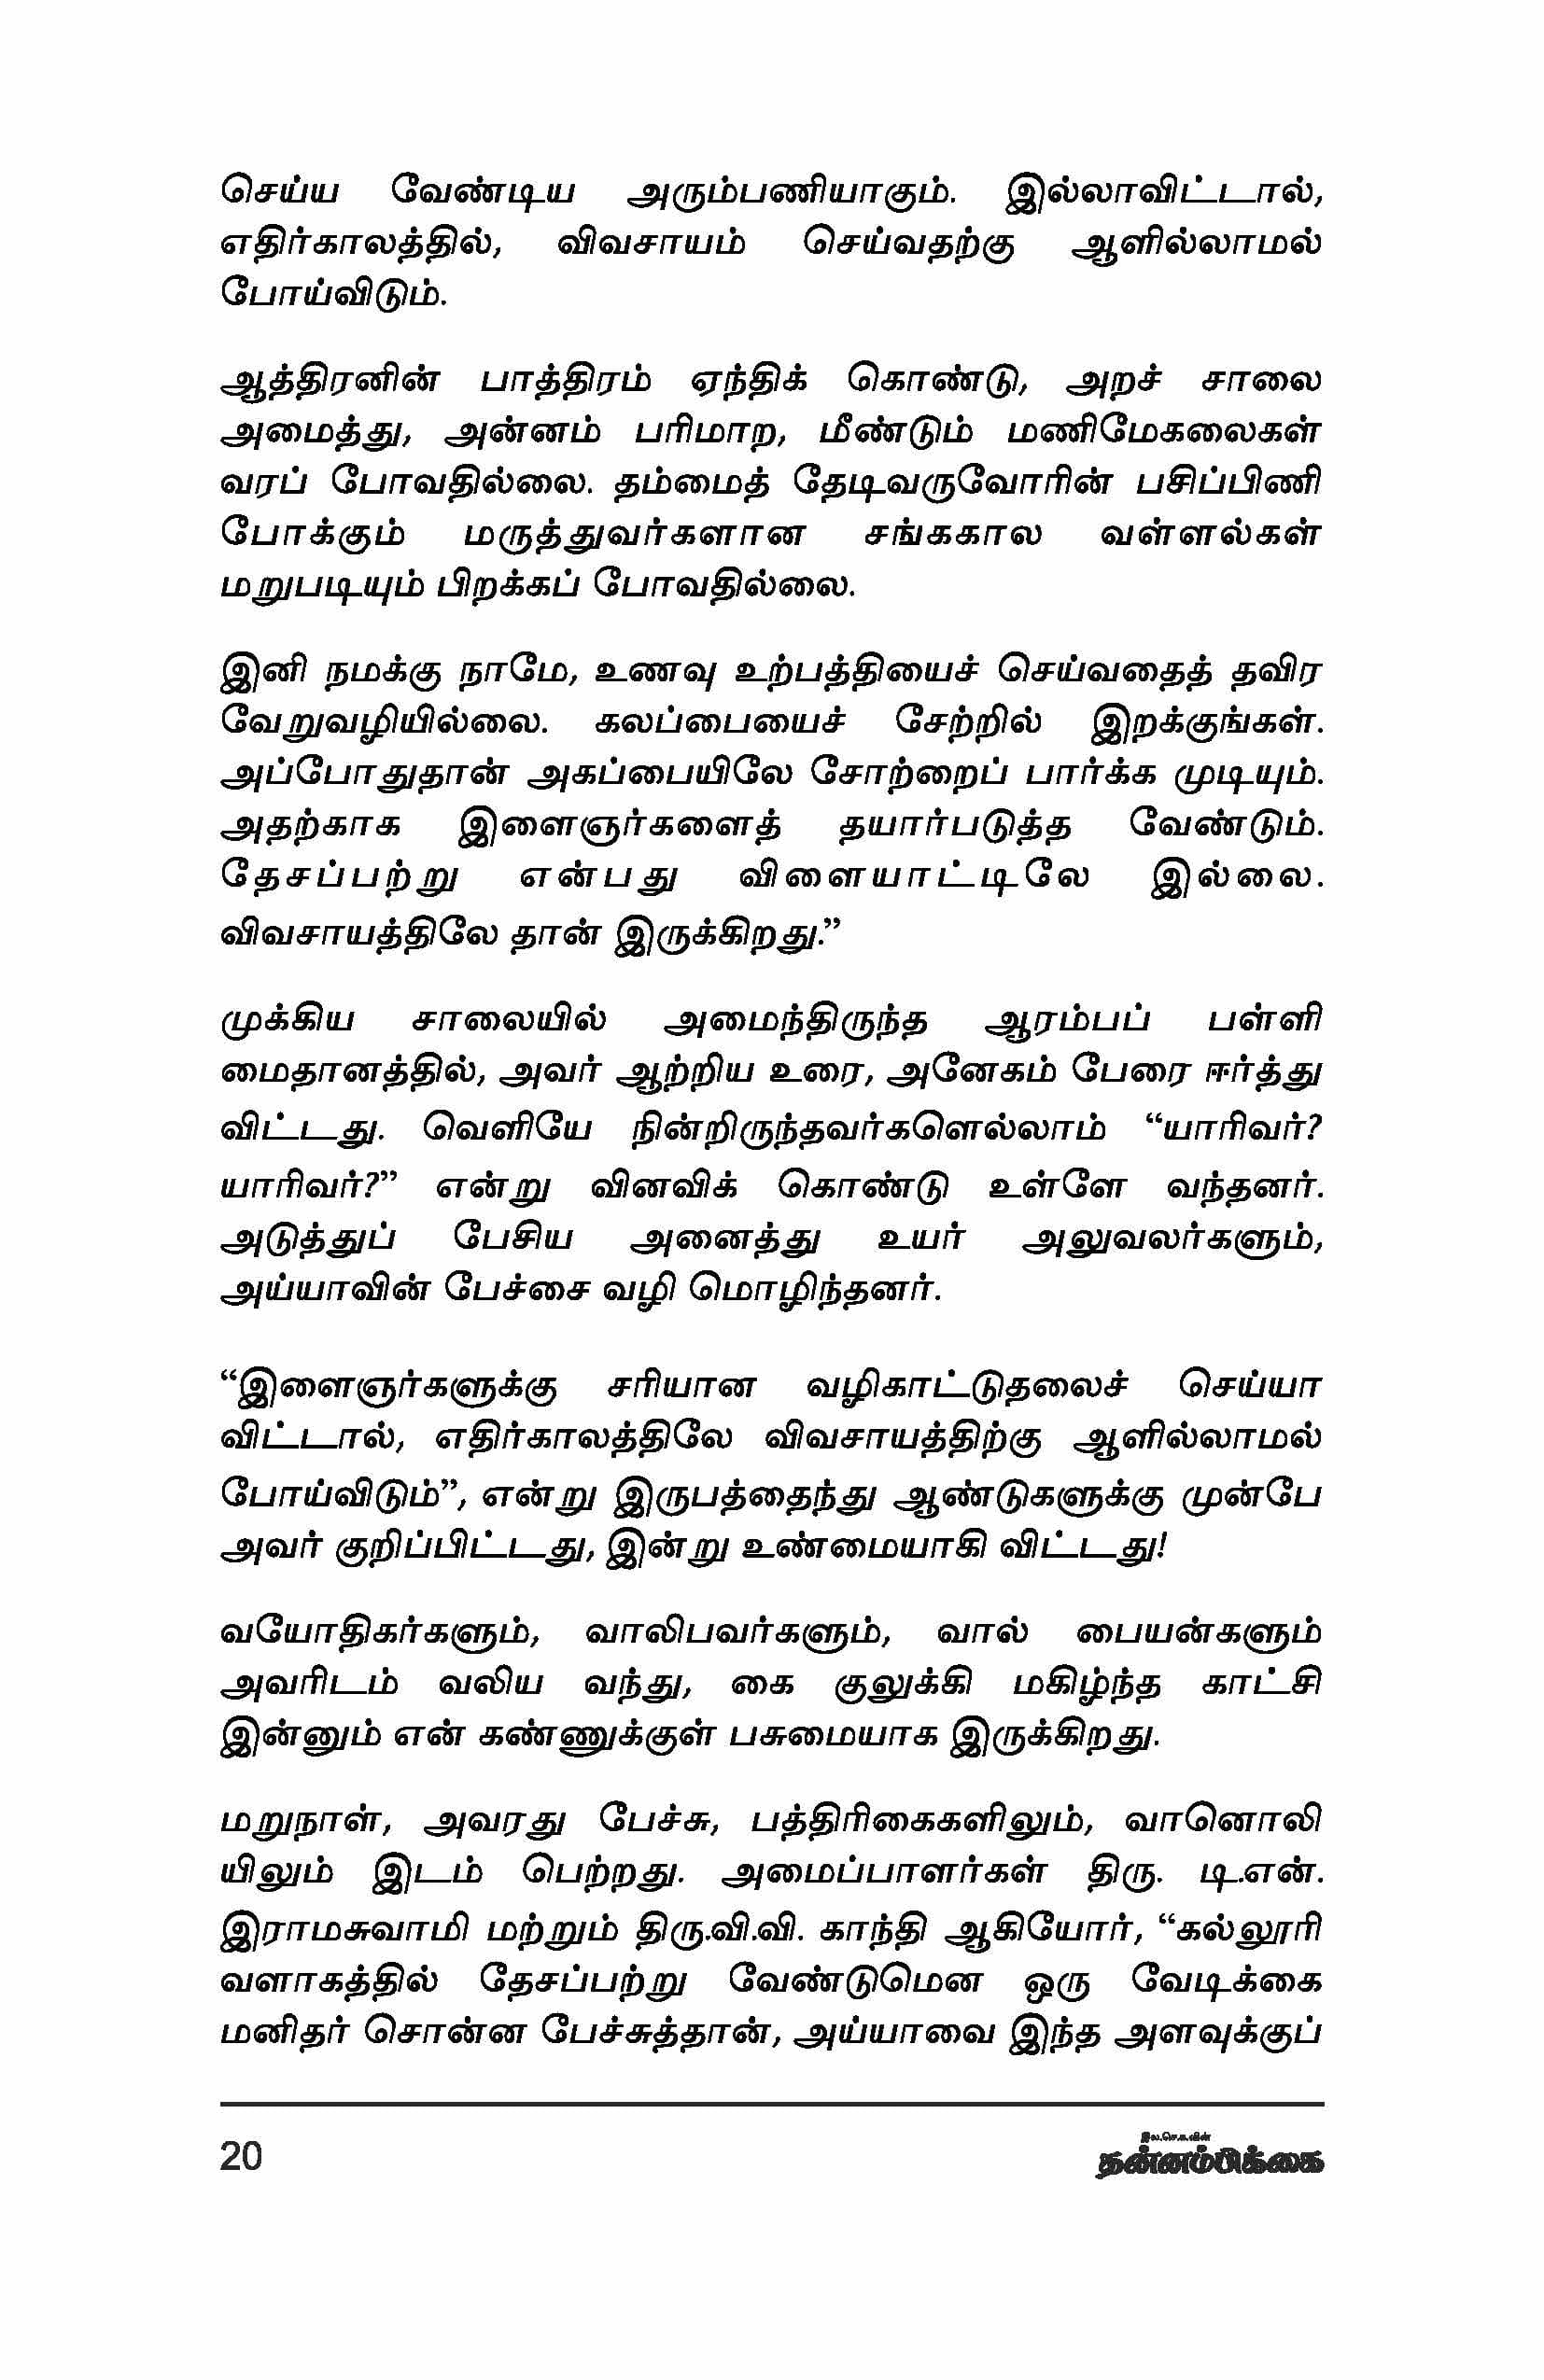 செய்ய வேண்டிய அரும்பணியாகும். இல்லாவிட்டால்,
எதிர்காலத்தில், விவசாயம் செய்வதற்கு ஆளில்லாமல்
போய்விடும்.
ஆத்திரனின் பாத்திரம் ஏந்திக் கொண்டு, அறச் சாலை
அமைத்து, அன்னம் பரிமாற, மீண்டும் மணிமேகலைகள்
வரப் போவதில்லை. தம்மைத் தேடிவருவோரின் பசிப்பிணி
போக்கும் மருத்துவர்களான சங்ககால வள்ளல்கள்
மறுபடியும் பிறக்கப் போவதில்லை.
இனி நமக்கு நாமே, உணவு உற்பத்தியைச் செய்வதைத் தவிர
வேறுவழியில்லை. கலப்பையைச் சேற்றில் இறக்குங்கள்.
அப்போதுதான் அகப்பையிலே சோற்றைப் பார்க்க முடியும்.
அதற்காக இளைஞர்களைத் தயார்படுத்த வேண்டும்.
தேசப்பற்று என்பது விளையாட்டிலே இல்லை.
விவசாயத்திலே தான் இருக்கிறது.”
முக்கிய சாலையில் அமைந்திருந்த ஆரம்பப் பள்ளி
மைதானத்தில், அவர் ஆற்றிய உரை, அனேகம் பேரை ஈர்த்து
விட்டது. வெளியே நின்றிருந்தவர்களெல்லாம் “யாரிவர்?
யாரிவர்?” என்று வினவிக் கொண்டு உள்ளே வந்தனர்.
அடுத்துப் பேசிய அனைத்து உயர் அலுவலர்களும்,
அய்யாவின் பேச்சை வழி மொழிந்தனர்.
“இளைஞர்களுக்கு சரியான வழிகாட்டுதலைச் செய்யா
விட்டால், எதிர்காலத்திலே விவசாயத்திற்கு ஆளில்லாமல்
போய்விடும்”, என்று இருபத்தைந்து ஆண்டுகளுக்கு முன்பே
அவர் குறிப்பிட்டது, இன்று உண்மையாகி விட்டது!
வயோதிகர்களும், வாலிபவர்களும், வால் பையன்களும்
அவரிடம் வலிய வந்து, கை குலுக்கி மகிழ்ந்த காட்சி
இன்னும் என் கண்ணுக்குள் பசுமையாக இருக்கிறது.
மறுநாள், அவரது பேச்சு, பத்திரிகைகளிலும், வானொலி
யிலும் இடம் பெற்றது. அமைப்பாளர்கள் திரு. டி.என்.
இராமசுவாமி மற்றும் திரு.வி.வி. காந்தி ஆகியோர், “கல்லூரி
வளாகத்தில் தேசப்பற்று வேண்டுமென ஒரு வேடிக்கை
மனிதர் சொன்ன பேச்சுத்தான், அய்யாவை இந்த அளவுக்குப்
20
இல.செ.க.வின்
தன்னம்பிக்கை